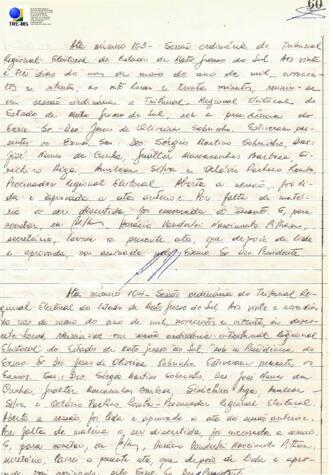 TRE-MS
60
Ata número 103 - Sessão ordinária do Tribunal
Regional Eleitoral do Estado de Mato Grosso do Sul. Aos vinte
e três dias do mês de maio do ano de mil, novecen-
tos e oitenta, às oito horas e trinta minutos, reuniu-se
em sessão ordinária o Tribunal Regional Eleitoral do
Estado de Mato Grosso do Sul, sob a presidência do
Exmo Sr. Des. Jesus de Oliveira Sobrinho. Estiveram pre-
sentes os Exmos. Srs. Des. Sérgio Martins Sobrinho, Des.
José Nunes da Cunha, Gualter Mascarenhas Barbosa,
Higa, Amilcar Silva e Octávio Pacheco
Procurador Regional Eleitoral. Aberta a sessão, foi li-
da e aprovada a ata anterior. Por falta de maté-
ria a ser discutida, foi encerrada a sessão. E, para
constar, eu Horácio Vanderlei Nascimento
secretário, lavrei a presente ata, que depois de lida
e aprovada, vai assinada pelo Exmo Sr. Des. Presidente.
Ata número 104 - Sessão ordinária do Tribunal Re-
gional Eleitoral do Estado de Mato Grosso do Sul. Aos vinte e
dias do mês de maio do ano de mil, novecentos e oitenta, às
horas, reuniu-se em sessão ordinária o Tribunal Regional
Eleitoral do Estado de Mato Grosso do Sul, sob a Presidência do
Exmo Sr. Des. Jesus de Oliveira Sobrinho. Estiveram presentes, os
Exmos. Srs. Des. Sérgio Martins Sobrinho, Des. José Nunes da
Cunha, Gualter Mascarenhas Barbosa, Higa, Amilcar
Silva e Octávio Pacheco - Procurador Regional Eleitoral.
Aberta a sessão, foi lida e aprovada a ata da sessão anterior.
Por falta de matéria a ser discutida, foi encerrada a sessão.
E, para constar, eu Horácio Vanderlei Nascimento
secretário, lavrei a presente ata, que depois de lida e apro-
vada, vai assinada pelo Exmo. Sr. Des. Presidente